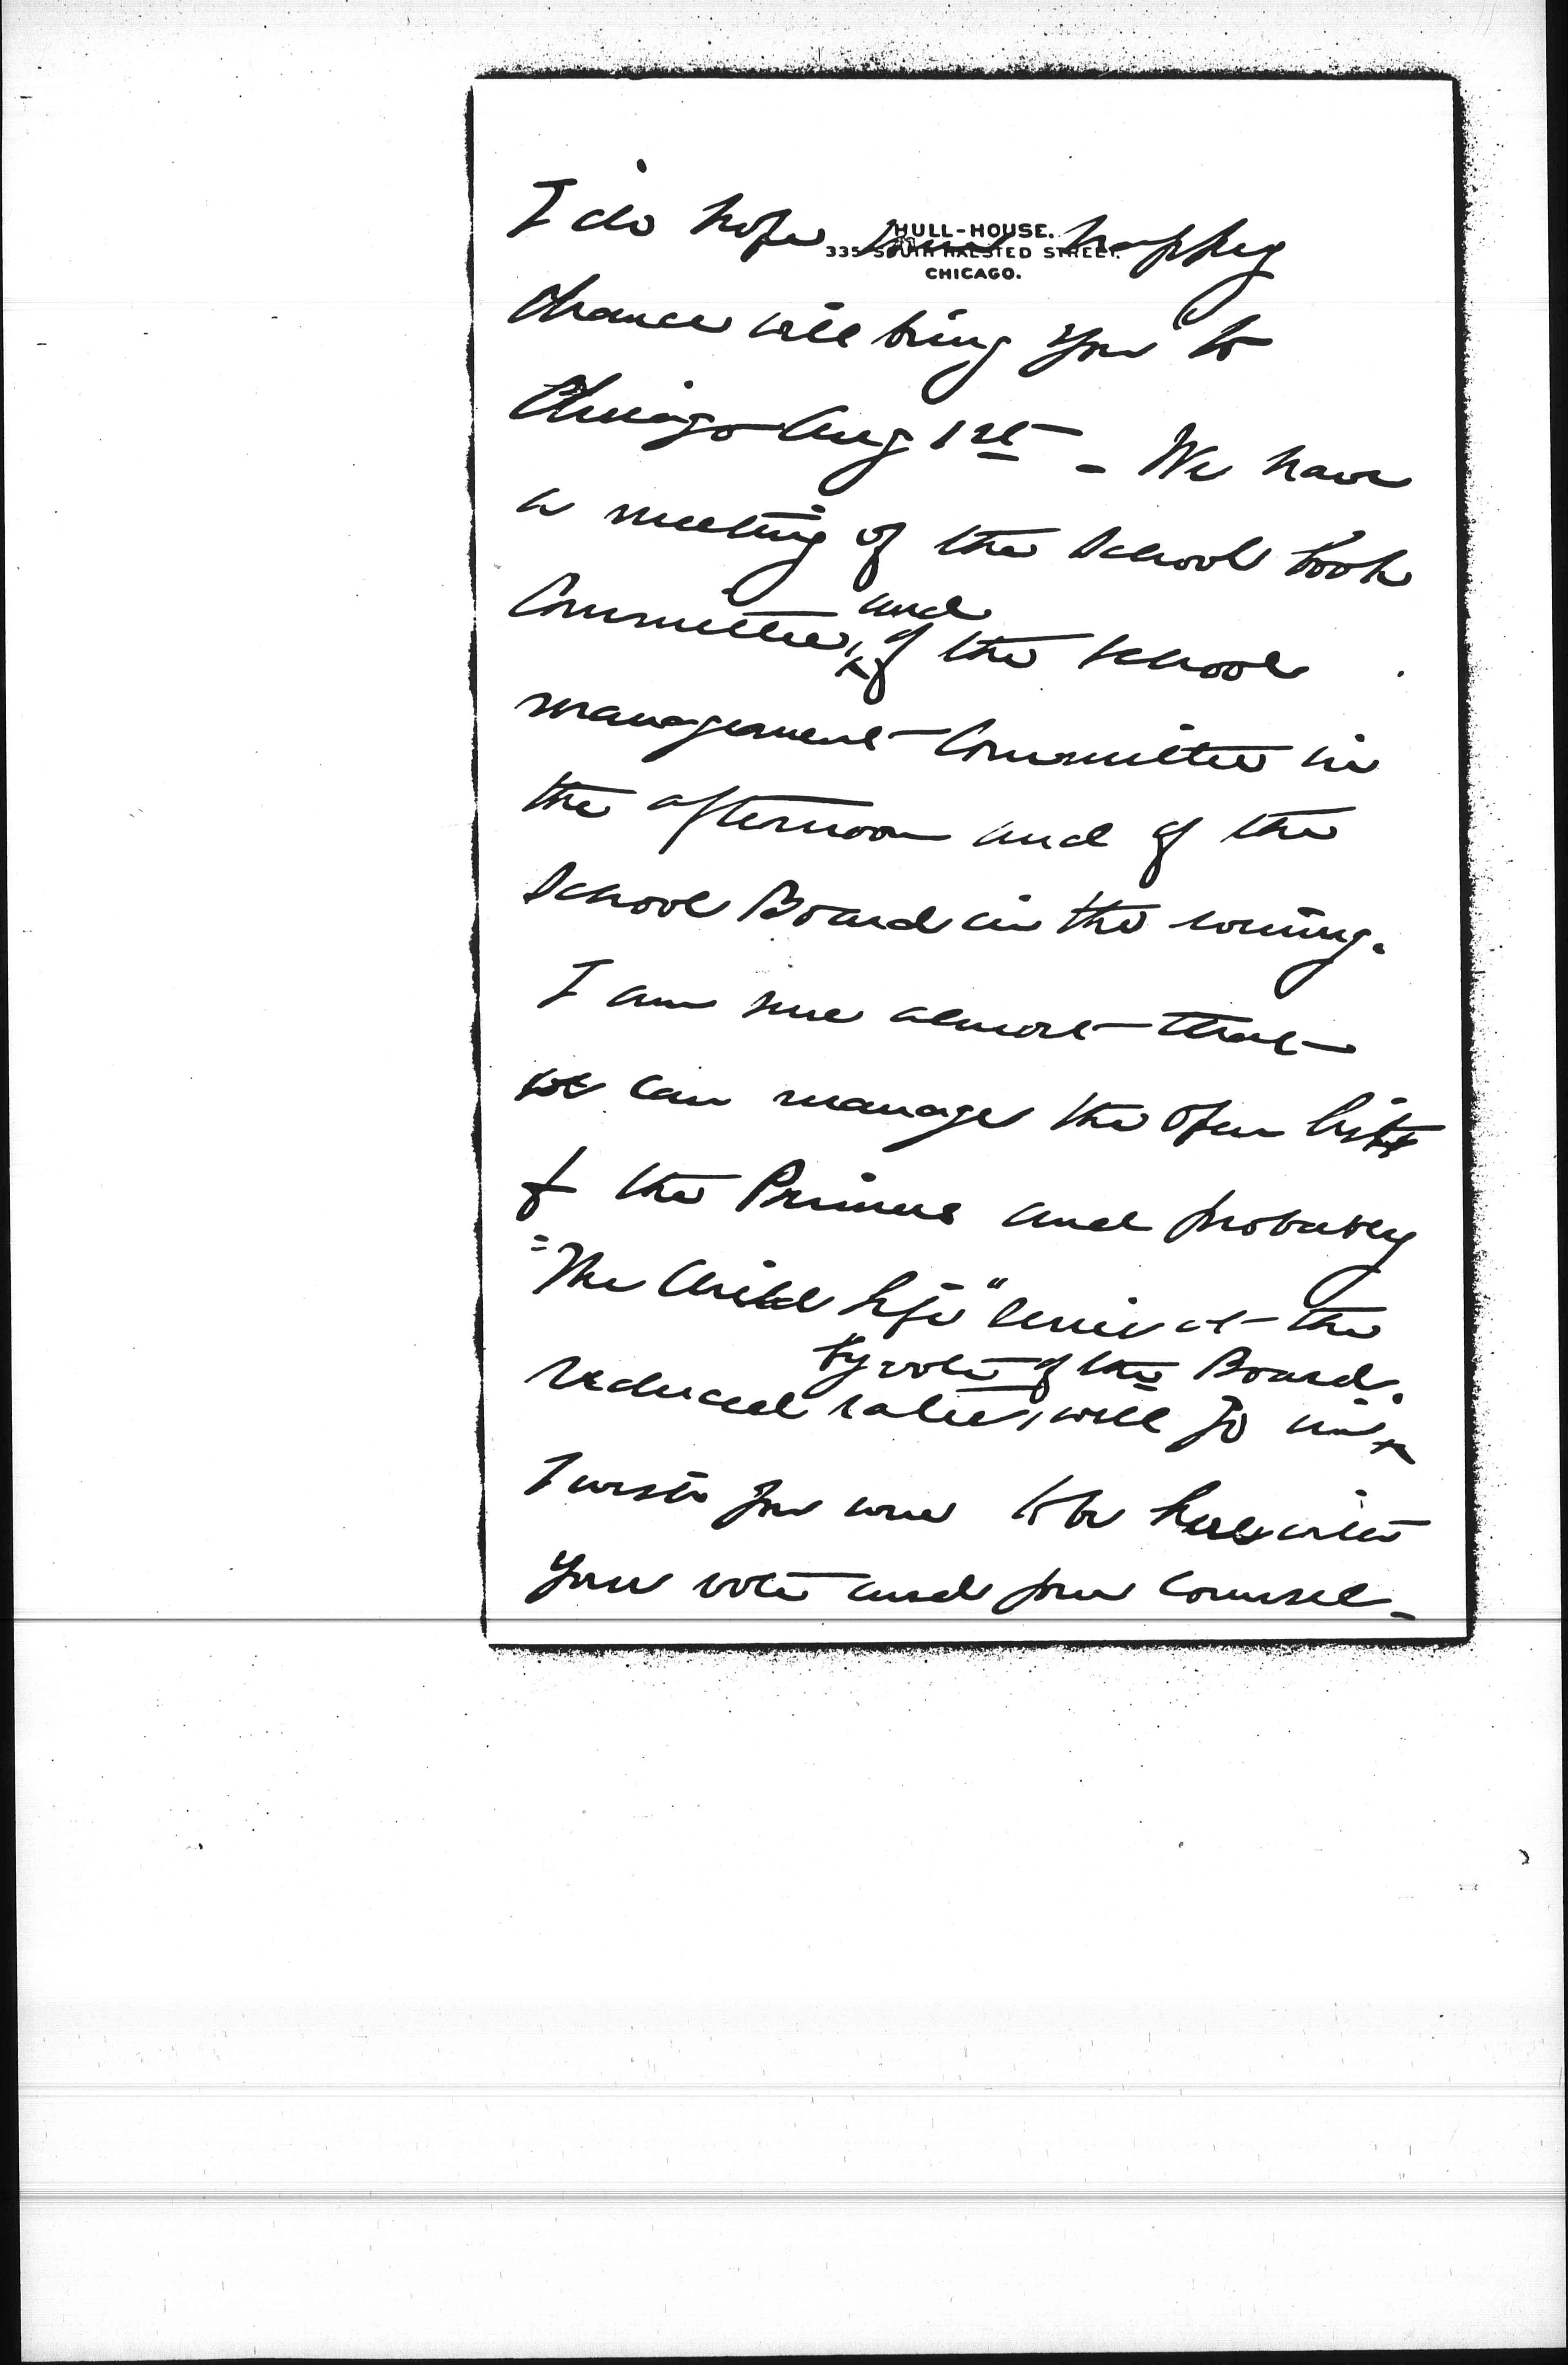 HULL-HOUSE.
335 SOUTH HALSTED STREET.
CHICAGO.
I do hope some happy
chance will bring you to
Chicago Aug 1st - We have
a meeting of the School book
Committee, and of the school
management Committee in
the afternoon and of the
School Board in the evening.
I am sure almost that
we can manage the open list
of the Primers and probably
"The Child Life" series at the
reduced rates, will go in by vote of the Board.
I wish you were to be here with
your vote and your counsel -